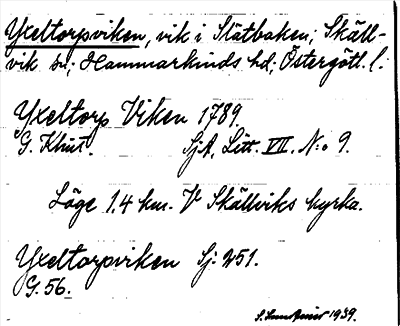 Yxeltorpsviken, vik i Slätbaken; Skäll-
vik sn; Hammarkinds hd; Östergötl. l.
Yxeltorp Viken 1789.
G. Klint. Sj.A, Litt. VII. N:o 9.
Läge 1.4 km. V Skällviks kyrka.
Yxeltorpsviken Sj. 251.
G. 56.
1939.